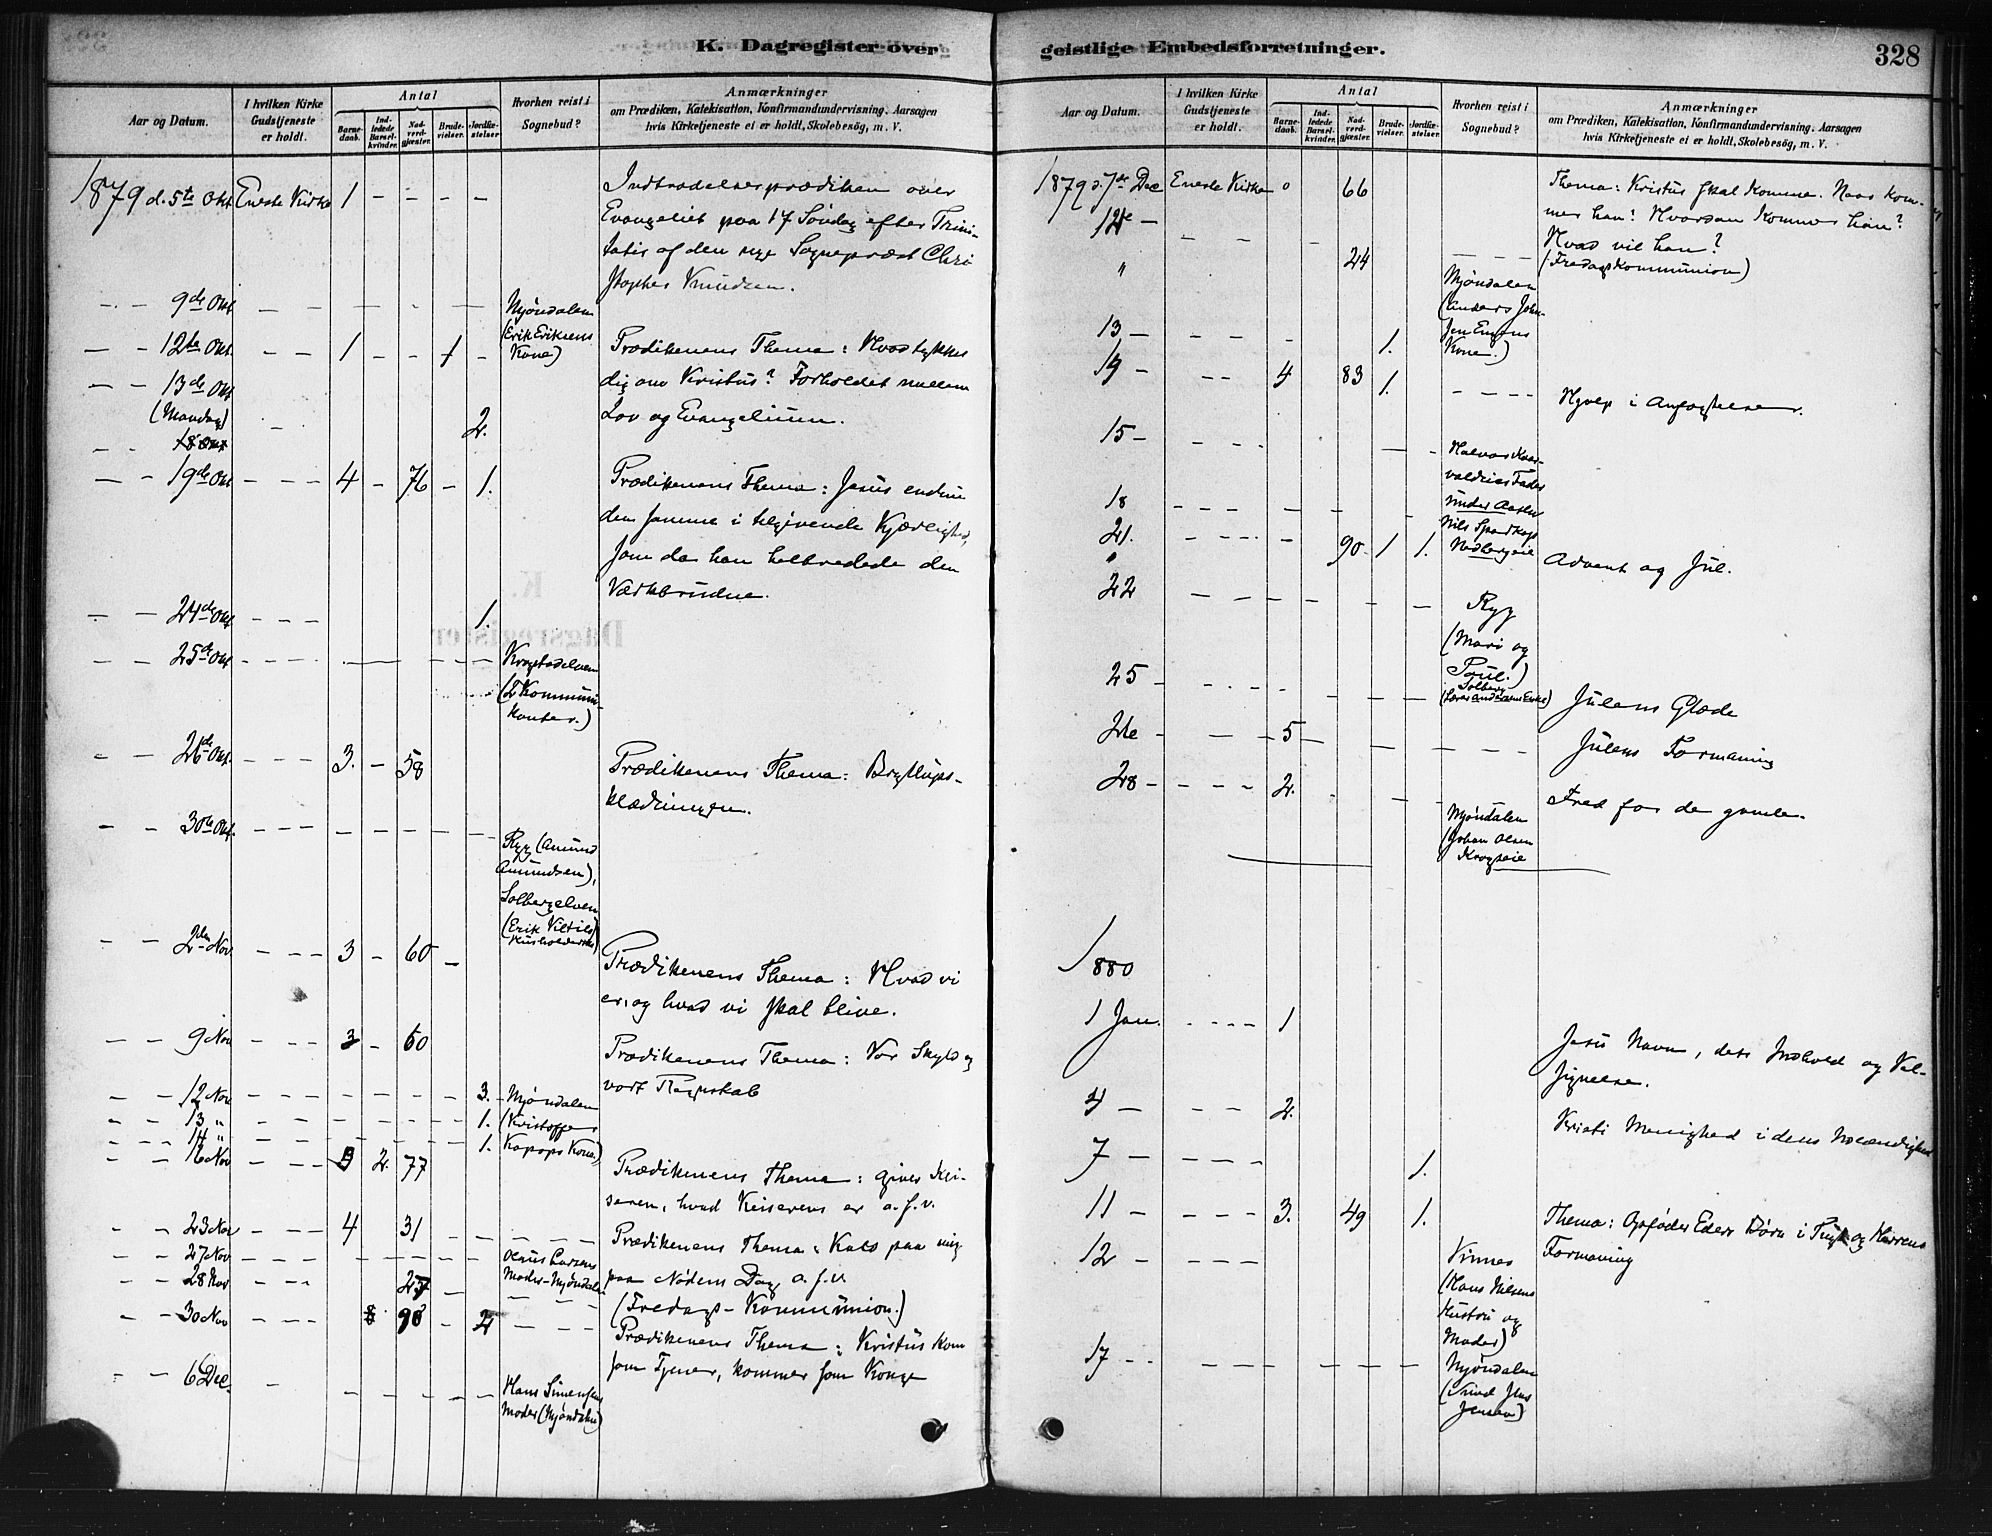 K. Dagregister over
geistlige Embedsforretninger.
328
Aar og Datum.
I hvilken Kirke
Gudstjeneste
er holdt.
Antal
Barne-
daab.
Ind-
ledede
Barsel-
kvinder.
Nad-
verd-
gjæster.
Brude-
vielser.
Jordfæ-
stelser.
Hvorhen reist i
Sognebud?
Anmærkninger
om Prædiken, Katekisation, Konfirmandundervisning. Aarsagen
hvis Kirketjeneste ei er holdt, Skolebesög, m. V.
1879 d. 5te Okt Eneste Kirke 1 - - - -
Indtrædelsesprædiken over
Evangeliet paa 17 Søndag efter Trini-
tatis af den nye Sogneprest Chri-
stopher Knudsen.
9de Okt
Mjøndalen
(Erik Eriksens
Kone)
12te Okt. 1 - - 1 -
Prædikenens Thema: Hvad tykkes
dig om Kristus? Forholdet mellem
Lov og Evangelium.
13de Okt
(Mandag) 2.
18 Okt
19de Okt 4 - 76 - 1.
Prædikenens Thema: Jesus endnu
den samme i tilgivende Kjærlighed,
som da han helbredede den
Værkbrudne.
24de Okt 1.
25de Okt
Krogstadelven
(2 Kommuni-
kanter.)
26de Okt. 3. - 58
Prædikenens Thema: Bryllups-
klædningen.
30te Okt.
Ryg (Amund
Amundsen),
Solbergelven
(Erik
2den Nov 3 - 60 -
Prædikenens Thema: Hvad vi
er, og hvad vi skal blive.
9 Nov 3 - 60
Prædikenens Thema: Vor Skyld og
vort Regnskab
12 Nov 3. Mjøndalen
13 " 1. (Kristoffer
14 " 1. Kopops Kone.)
16 Nov 2. 77
Prædikenens Thema: giver Kei-
seren, hvad Keiserens er o. s. v.
23 Nov 4 31
Prædikenens Thema: Kald paa mig
paa Nødens Dag, o. s. v.
27 Nov
Larsens
Moder-Mjøndalen
28 Nov
(Fredags-Kommunion.)
30 Nov
Prædikenens Thema: Kristus kom
som Tjener, kommer som Konge
6 Dec.
Hans Simensens
Moder (Mjøndalen)
Aar og Datum.
I hvilken Kirke
Gudstjeneste
er holdt.
Antal
Barne-
daab.
Ind-
ledede
Barsel-
kvinder.
Nad-
verd-
gjæster.
Brude-
vielser.
Jordfæ-
stelser.
Hvorhen reist i
Sognebud?
Anmærkninger
om Prædiken, Katekisation, Konfirmandundervisning. Aarsagen
hvis Kirketjeneste ei er holdt, Skolebesög, m. V.
1879 d. 7de Dec Eneste Kirke 0 66
Thema: Kristus skal komme. Naar kom-
mer han? Hvordan kommer han?
Hvad vil han?
12te - 24
(Fredagskommunion)
"
Mjøndalen
(Anders John-
sen
Kone.)
13 - 1.
4 83 1.
Hjælp i Anfægtelser.
15 -
Halvor
Fader
under Aasen
18
Nils
21. 90. 1 1.
Advent og Jul.
22
Ryg
(Mari og
Poul.)
25
Solberg
Julens Glæde
26 - 5
Julens Formaning
28 - 2.
Fred for de gamle.
Mjøndalen
(Johan Olsen
1880
1 Jan. 1
Jesu Navn, dets Indhold og Vel-
signelse.
4 - 2.
Kristi Menighed i dens
7 - 1.
11 - 3. 49 1.
Thema: Opføder Eders Børn i Tugt og Herrens
Formaning
12 -
Vinnes
(Hans Nilsens
Hustru og
Moder)
17 -
Mjøndalen
Jensen)